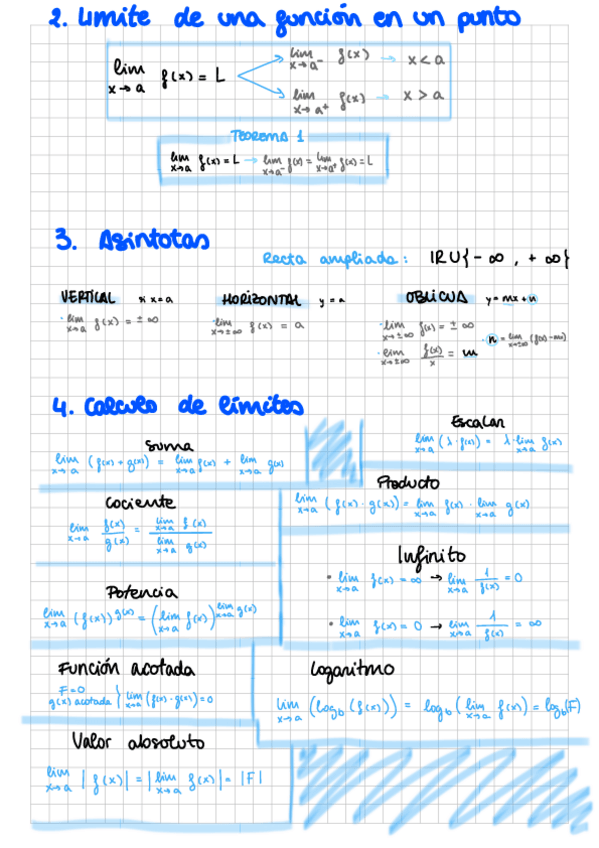 2. Límite de una función en un punto
lim x→a f(x) = L
lim x→a⁻ f(x) → x < a
lim x→a⁺ f(x) → x > a
TEOREMA 1
lim x→a f(x) = L → lim x→a⁻ f(x) = lim x→a⁺ f(x) = L
3. Asíntotas
Recta ampliada: IR U {-∞, +∞}
VERTICAL si x=a
· lim x→a f(x) = ±∞
HORIZONTAL y = a
· lim x→±∞ f(x) = a
OBLICUA y = mx+n
· lim x→±∞ f(x) = ±∞
· lim x→±∞ f(x)/x = m
· n = lim x→±∞ (f(x)-mx)
4. Calculo de límites
Suma
lim x→a (f(x) + g(x)) = lim x→a f(x) + lim x→a g(x)
Escalar
lim x→a (λ·f(x)) = λ·lim x→a f(x)
Cociente
lim x→a f(x)/g(x) = lim x→a f(x) / lim x→a g(x)
Producto
lim x→a (f(x)·g(x)) = lim x→a f(x) · lim x→a g(x)
Potencia
lim x→a (f(x))^g(x) = (lim x→a f(x))^lim x→a g(x)
Infinito
• lim x→a f(x) = ∞ → lim x→a 1/f(x) = 0
• lim x→a f(x) = 0 → lim x→a 1/f(x) = ∞
Función acotada
F=0
g(x) acotada } lim x→a (f(x)·g(x)) = 0
Logaritmo
lim x→a (log_b (f(x))) = log_b (lim x→a f(x)) = log_b(F)
Valor absoluto
lim x→a |f(x)| = |lim x→a f(x)| = |F|